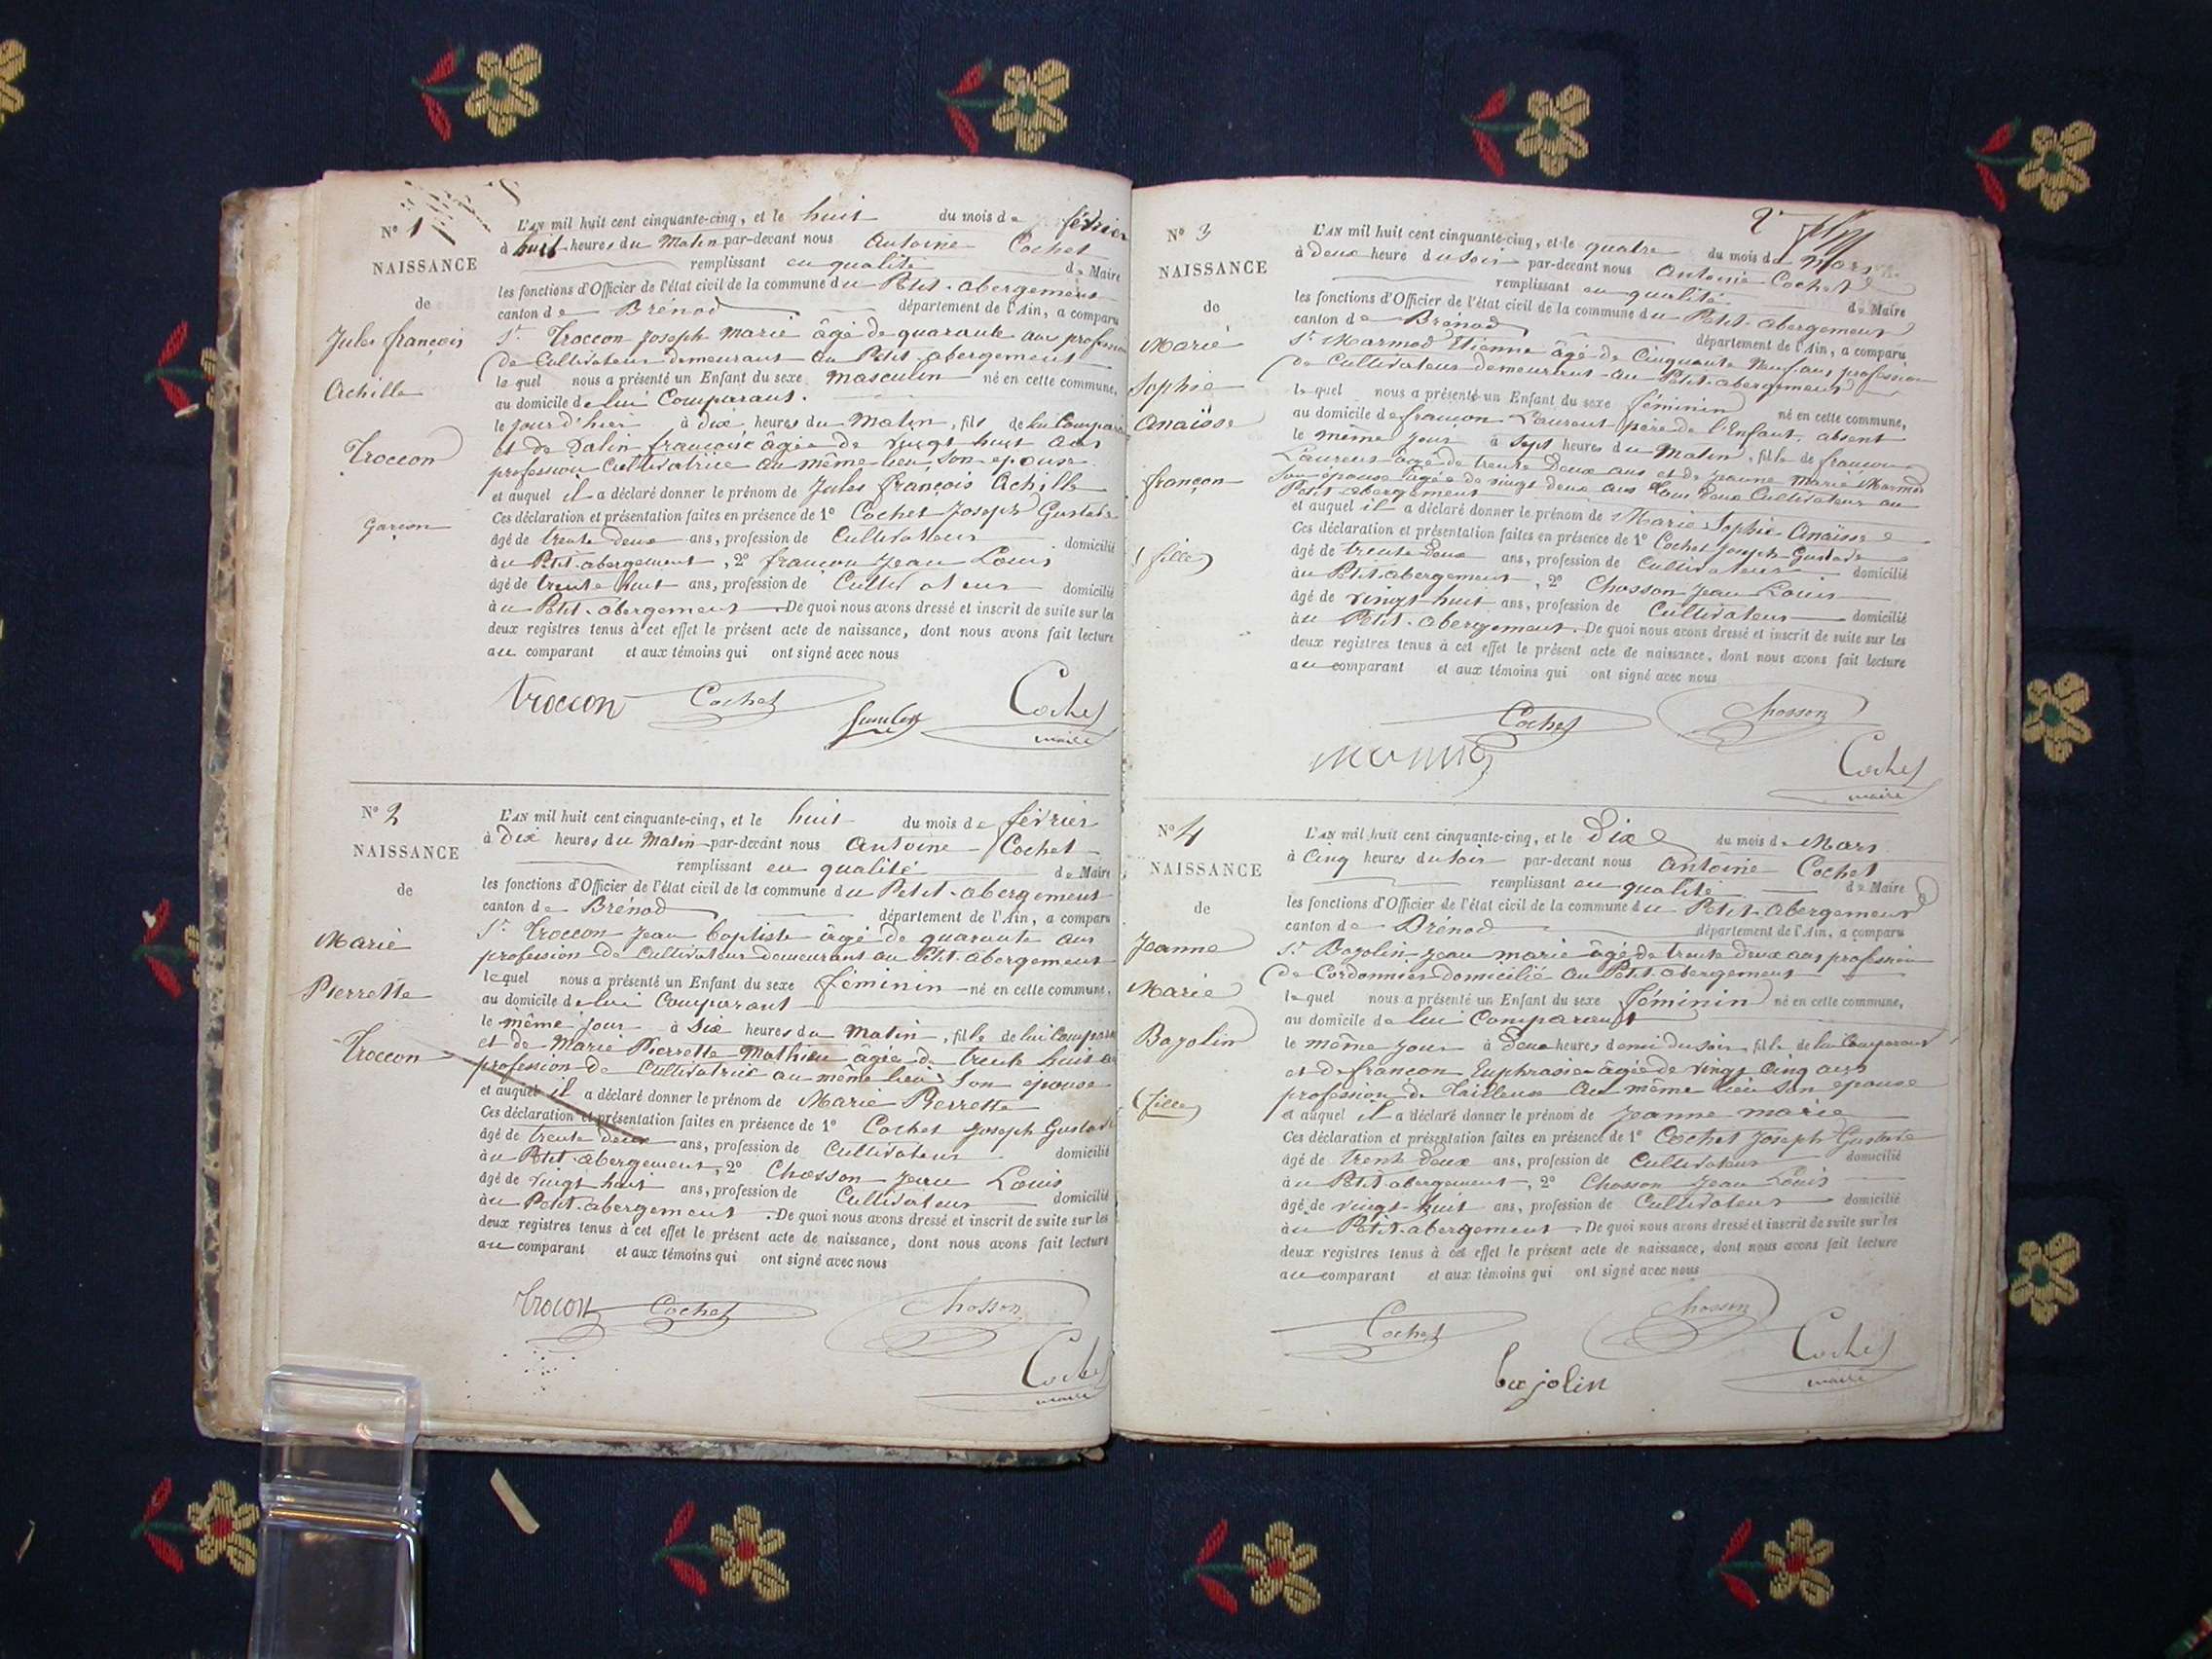 N° 1
NAISSANCE
de
Jules françois
Achille
Troccon
Garçon
L'AN mil huit cent cinquante-cinq, et le huit du mois de février
à huit heures du Matin par-devant nous Antoine Cochet
remplissant en qualité de Maire
les fonctions d'Officier de l'état civil de la commune du Petit-abergement
canton de Brénod département de l'Ain, a comparu
Sr Troccon Joseph Marie âgé de quarante ans profession
de Cultivateur demeurant au Petit-abergement
lequel nous a présenté un Enfant du sexe masculin né en cette commune,
au domicile de lui Comparant.
le jour d'hier à dix heures du Matin, fils de lui Comparant
et de Dalin françoise âgée de vingt huit ans
profession Cultivatrice au même lieu son épouse
et auquel il a déclaré donner le prénom de Jules François Achille
Ces déclaration et présentation faites en présence de 1° Cochet Joseph Gustave
âgé de trente deux ans, profession de Cultivateur domicilié
au Petit-abergement, 2° françon Jean Louis
âgé de trente huit ans, profession de Cultivateur domicilié
au Petit-abergement. De quoi nous avons dressé et inscrit de suite sur les
deux registres tenus à cet effet le présent acte de naissance, dont nous avons fait lecture
au comparant et aux témoins qui ont signé avec nous
troccon Cochet Cochet
maire
N° 2
NAISSANCE
de
Marie
Pierrette
Troccon
L'AN mil huit cent cinquante-cinq, et le huit du mois de février
à Dix heures du Matin par-devant nous Antoine Cochet
remplissant en qualité de Maire
les fonctions d'Officier de l'état civil de la commune du Petit-abergement
canton de Brénod département de l'Ain, a comparu
Sr Troccon Jean baptiste âgé de quarante ans
profession de Cultivateur demeurant au Petit-abergement
lequel nous a présenté un Enfant du sexe féminin né en cette commune,
au domicile de lui Comparant
le même jour à six heures du matin, fille de lui Comparant
et de Marie Pierrette Mathieu âgée de trente huit ans
profession de Cultivatrice au même lieu son épouse
et auquel il a déclaré donner le prénom de Marie Pierrette
Ces déclaration et présentation faites en présence de 1° Cochet Joseph Gustave
âgé de trente deux ans, profession de Cultivateur domicilié
au Petit-abergement, 2° Chosson Jean Louis
âgé de vingt huit ans, profession de Cultivateur domicilié
au Petit-abergement. De quoi nous avons dressé et inscrit de suite sur les
deux registres tenus à cet effet le présent acte de naissance, dont nous avons fait lecture
au comparant et aux témoins qui ont signé avec nous
trocon Cochet Chosson
Cochet
maire
N° 3
NAISSANCE
de
Marie
Sophie
Anaïsse
françon
(fille)
L'AN mil huit cent cinquante-cinq, et le quatre du mois de Mars
à deux heure du soir par-devant nous Antoine Cochet
remplissant en qualité de Maire
les fonctions d'Officier de l'état civil de la commune du Petit-abergement
canton de Brénod département de l'Ain, a comparu
Sr Marmod Etienne âgé de Cinquante Neuf ans, profession
de Cultivateur demeurant au Petit-abergement
lequel nous a présenté un Enfant du sexe féminin né en cette commune,
au domicile de françon Laurent père de l'Enfant, absent
le même jour à sept heures du Matin, fille de françon
Laurent âgé de trente deux ans et de Jeanne Marie Marmod
son épouse âgée de vingt deux ans tous deux Cultivateur au
Petit-abergement
et auquel il a déclaré donner le prénom de Marie Sophie Anaïsse
Ces déclaration et présentation faites en présence de 1° Cochet Joseph Gustave
âgé de trente deux ans, profession de Cultivateur domicilié
au Petit-abergement, 2° Chosson Jean Louis
âgé de vingt huit ans, profession de Cultivateur domicilié
au Petit-abergement. De quoi nous avons dressé et inscrit de suite sur les
deux registres tenus à cet effet le présent acte de naissance, dont nous avons fait lecture
au comparant et aux témoins qui ont signé avec nous
Cochet Chosson
Cochet
maire
N° 4
NAISSANCE
de
Jeanne
Marie
Bajolin
(fille)
L'AN mil huit cent cinquante-cinq, et le Dix du mois de Mars
à Cinq heures du soir par-devant nous Antoine Cochet
remplissant en qualité de Maire
les fonctions d'Officier de l'état civil de la commune du Petit-Abergement
canton de Brénod département de l'Ain, a comparu
Sr Bajolin Jean marie âgé de trente deux ans profession
de Cordonnier domicilié au Petit-abergement
lequel nous a présenté un Enfant du sexe féminin né en cette commune,
au domicile de lui Comparant
le même jour à deux heures demi du soir, fille de lui Comparant
et de françon Euphrasie âgée de vingt Cinq ans
profession de Tailleuse au même lieu son épouse
et auquel il a déclaré donner le prénom de Jeanne marie
Ces déclaration et présentation faites en présence de 1° Cochet Joseph Gustave
âgé de Trente deux ans, profession de Cultivateur domicilié
au Petit-abergement, 2° Chosson Jean Louis
âgé de vingt-huit ans, profession de Cultivateur domicilié
au Petit-abergement. De quoi nous avons dressé et inscrit de suite sur les
deux registres tenus à cet effet le présent acte de naissance, dont nous avons fait lecture
au comparant et aux témoins qui ont signé avec nous
Cochet Chosson
bajolin Cochet
maire